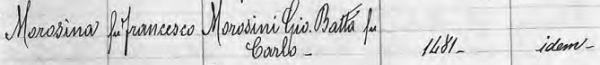 Morosina fu Francesco Morosini Gio. Batta fu
Carlo - 1481 - idem -